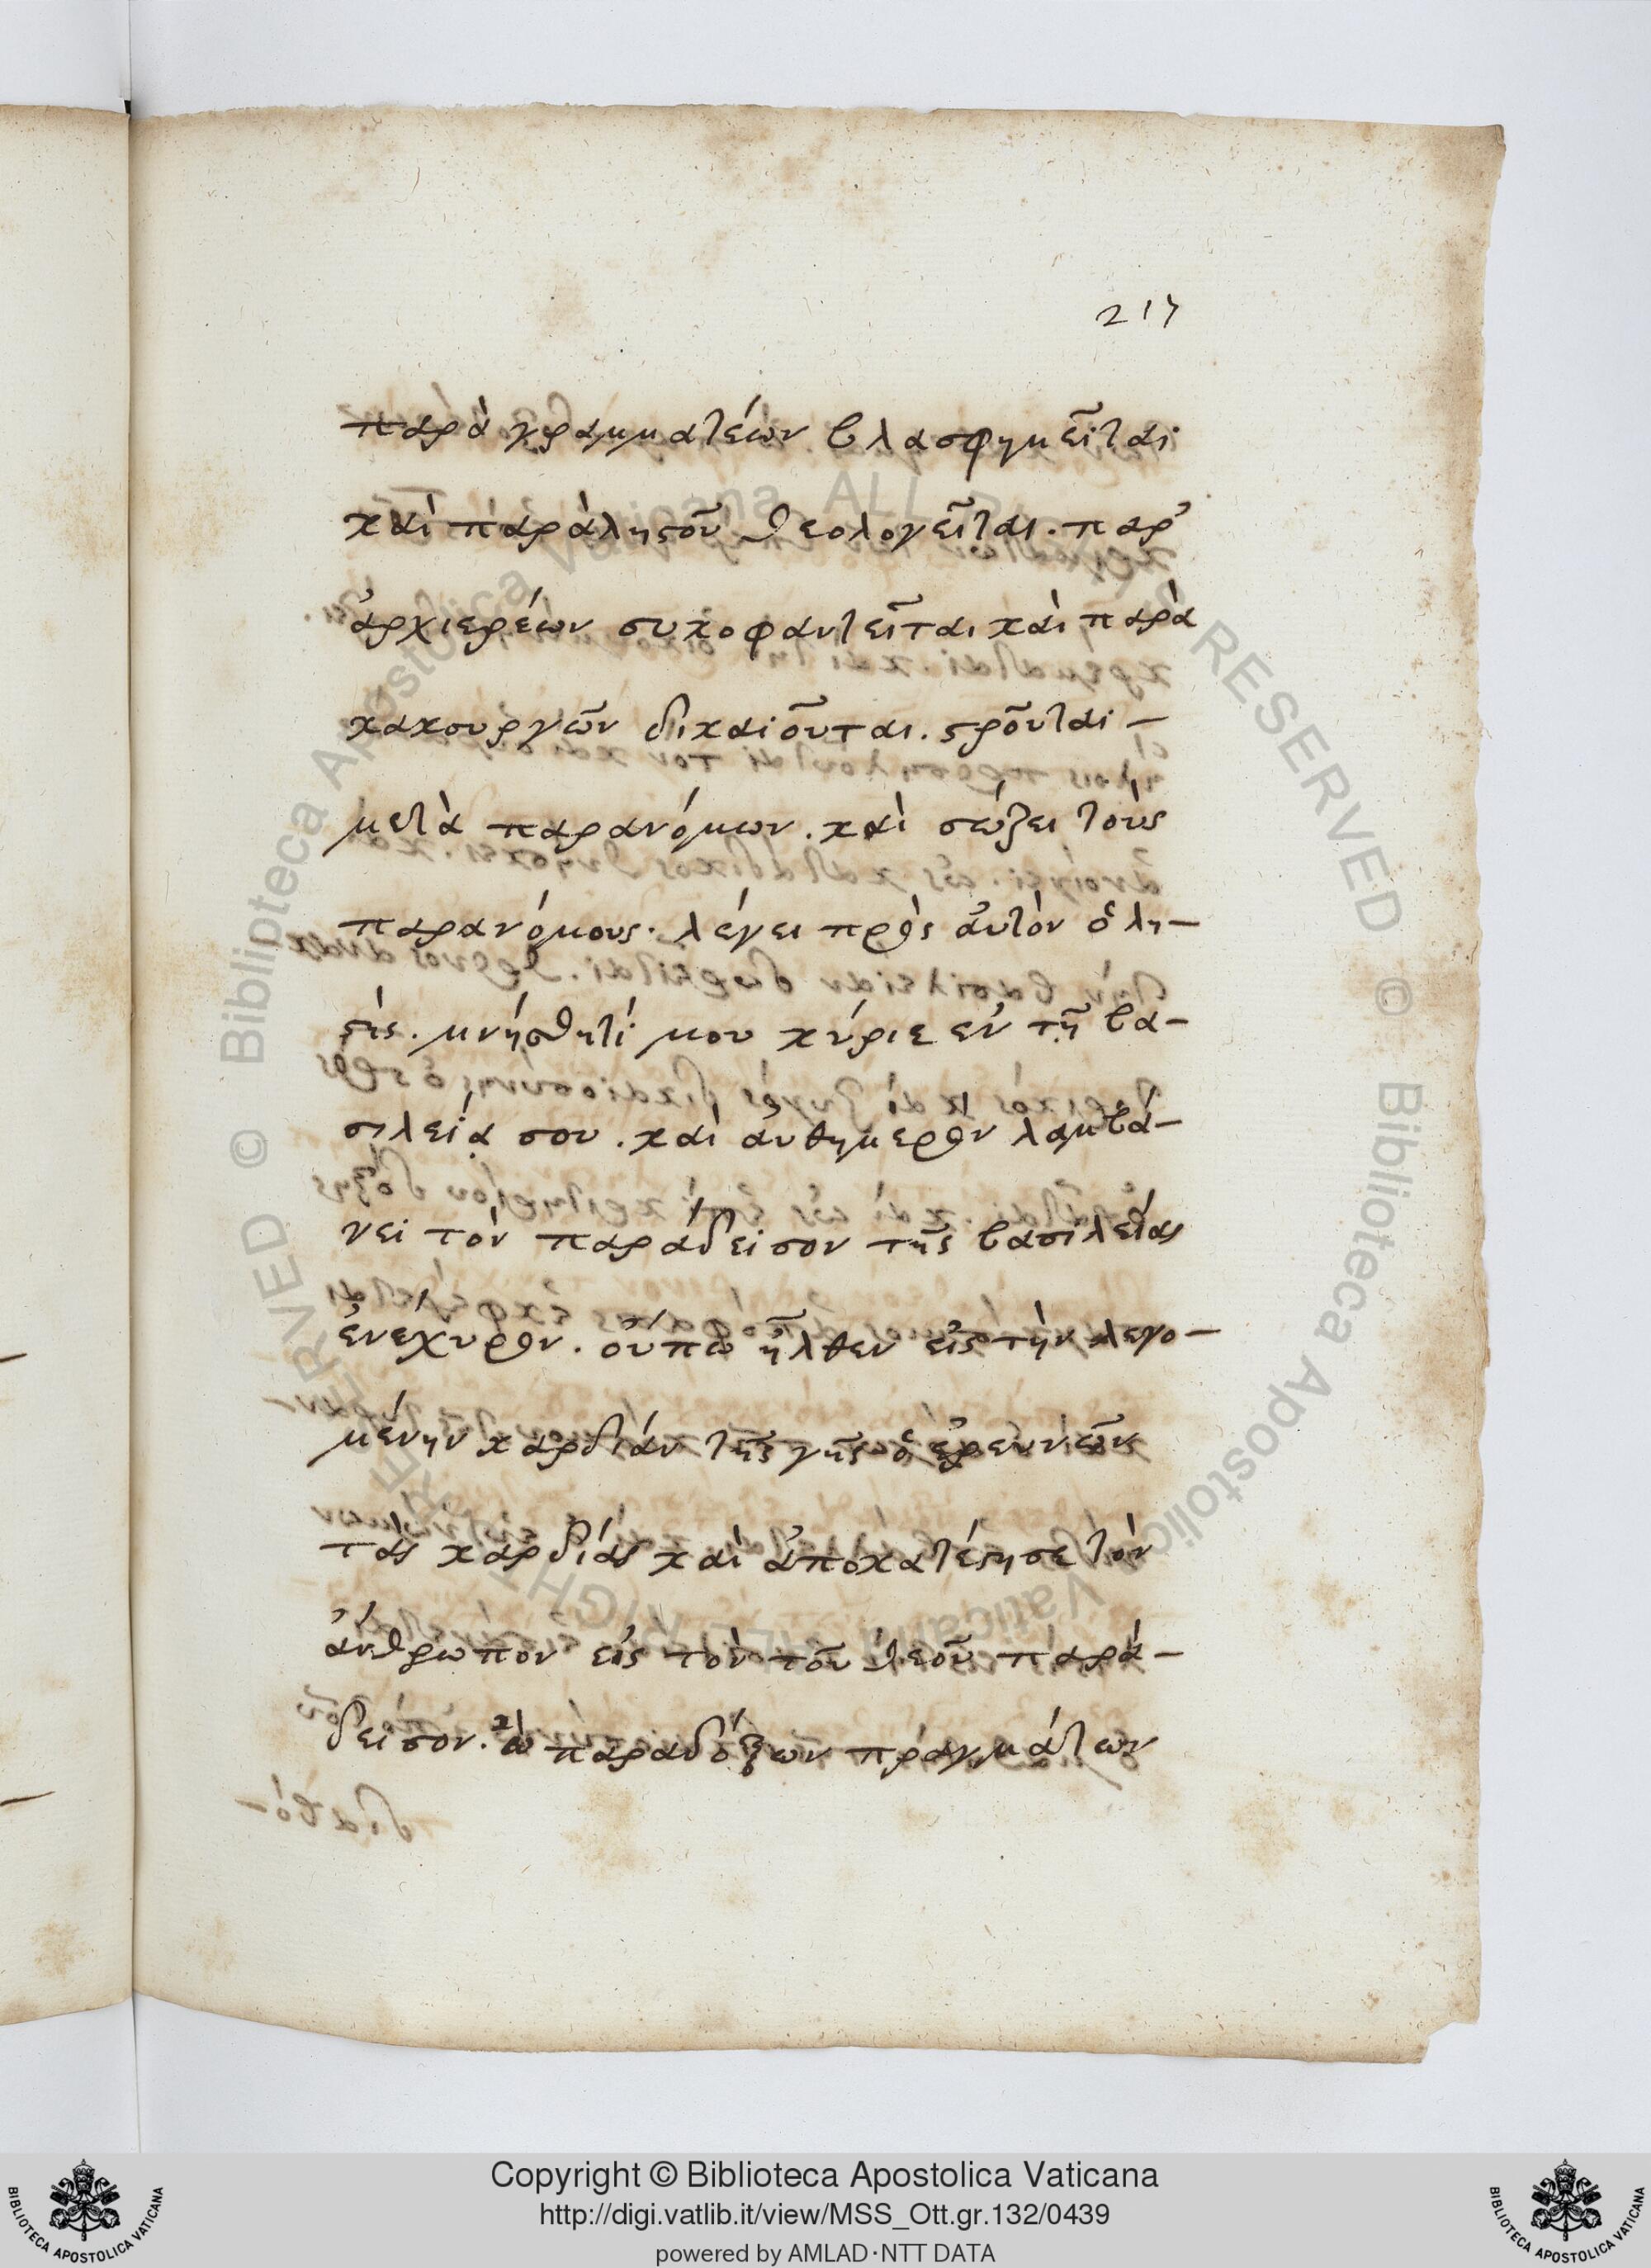 217
παρὰ γραμματέων βλασφημεῖται·
καὶ παρὰ λῃστοῦ θεολογεῖται. παρ'
ἀρχιερέων συκοφαντεῖται καὶ παρὰ
κακούργων δικαιοῦται. σροῦται -
μετὰ παρανόμων. καὶ σώζει τοὺς
παρανόμους. λέγει πρὸς αὐτὸν ὁ λη-
στής. μνήσθητί μου κύριε ἐν τῇ βα-
σιλείᾳ σου. καὶ αὐθήμερον λαμβά-
νει τὸν παράδεισον τῆς βασιλείας
ἐνέχυρον. οὔπω ἦλθεν εἰς τὴν λεγο-
μένην καρδίαν τῆς γῆς ὁ ἐρευνῶν
τὰς καρδίας καὶ ἀποκατέστησε τὸν
ἄνθρωπον εἰς τὸν τοῦ θεοῦ παρά-
δεισον. ὢ παραδόξων πραγμάτων
Copyright © Biblioteca Apostolica Vaticana
http://digi.vatlib.it/view/MSS_Ott.gr.132/0439
powered by AMLAD·NTT DATA
BIBLIOTECA APOSTOLICA VATICANA
BIBLIOTECA APOSTOLICA VATICANA